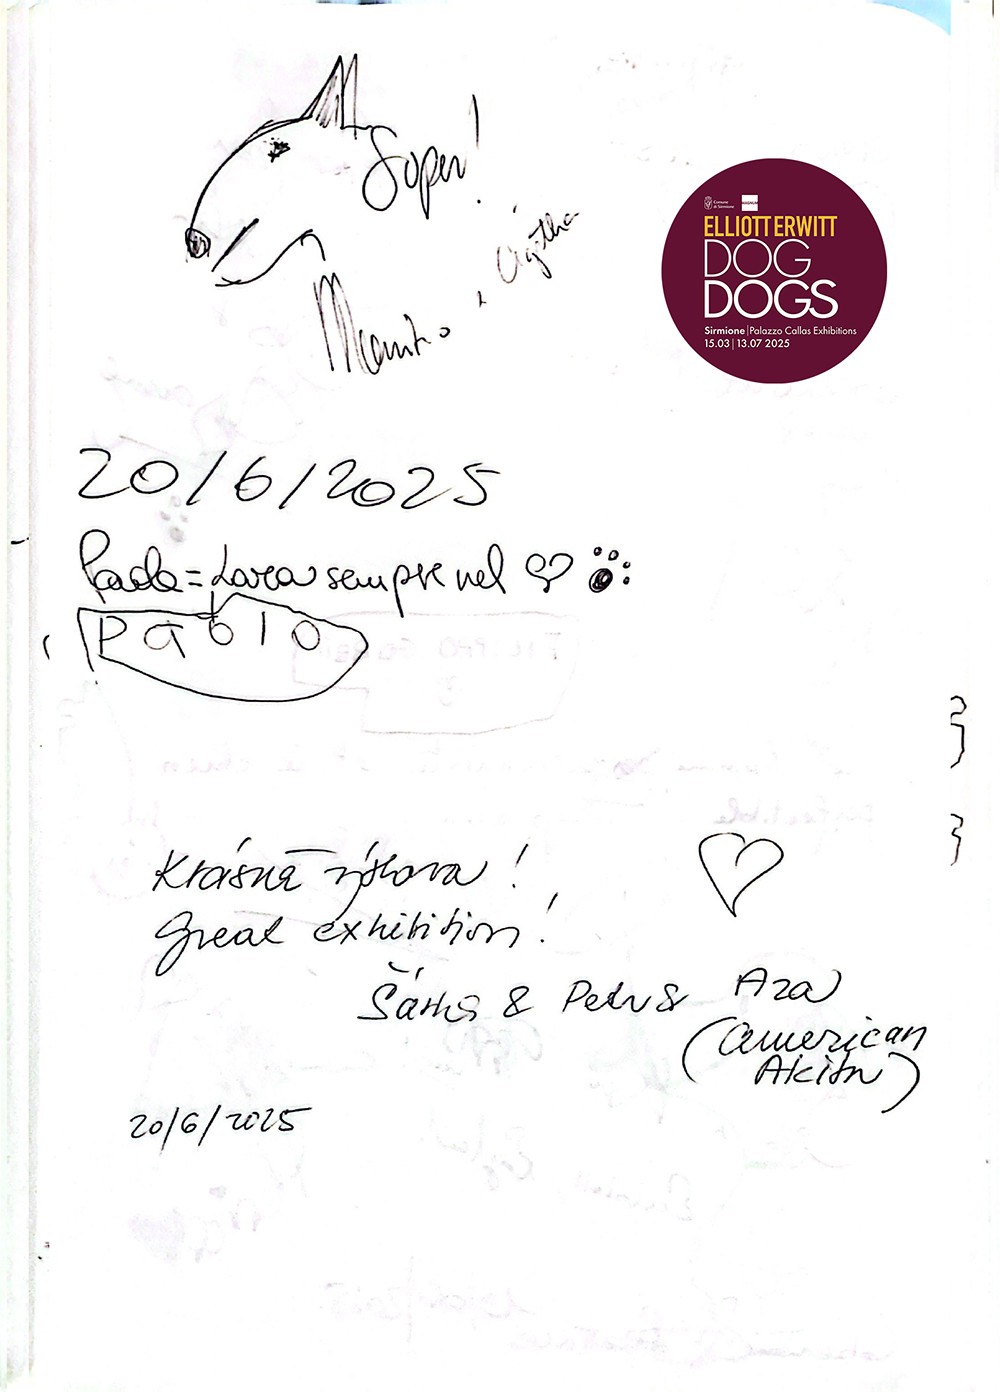 Super!
Agatha
Comune
di Sirmione
MAGNUM
ELLIOTT ERWITT
DOG
DOGS
Sirmione | Palazzo Callas Exhibitions
15.03 | 13.07 2025
20/6/2025
Paola = Lara sempre nel
Pablo
Krásná výstava!
Great exhibition!
Šárka & Petr & Aza
(American
Akita)
20/6/2025